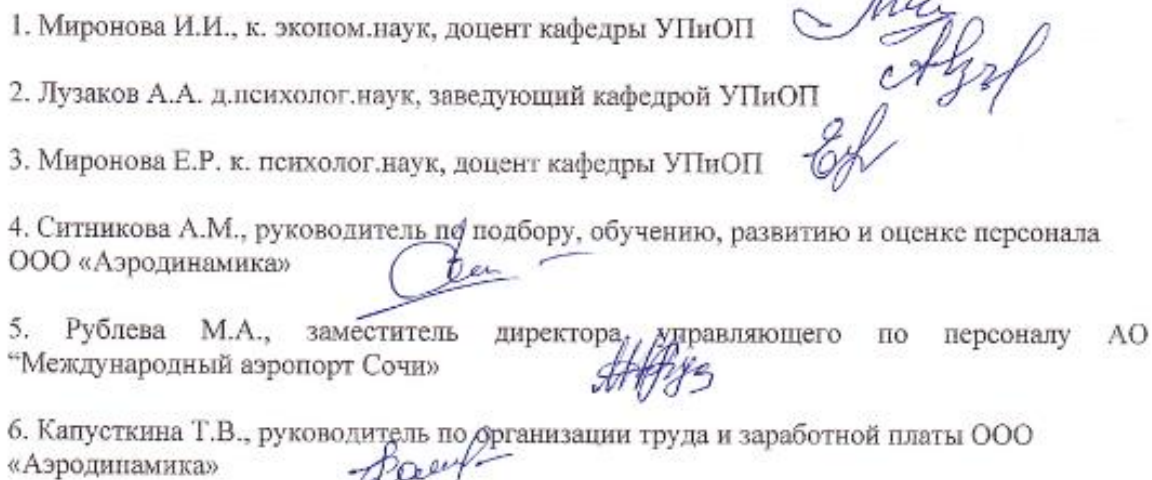 1. Миронова И.И., к. экопом.наук, доцент кафедры УПиОП
2. Лузаков А.А. д.психолог.наук, заведующий кафедрой УПиОП
3. Миронова Е.Р. к. психолог.наук, доцент кафедры УПиОП
4. Ситникова А.М., руководитель по подбору, обучению, развитию и оценке персонала
ООО «Аэродинамика»
5. Рублева М.А., заместитель директора, управляющего по персоналу АО
“Международный аэропорт Сочи»
6. Капусткина Т.В., руководитель по организации труда и заработной платы ООО
«Аэродинамика»